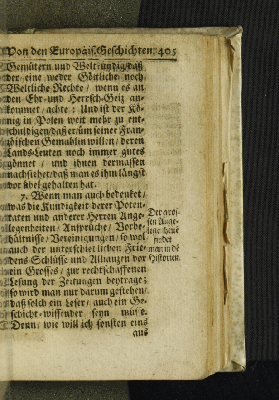 Von den Europäis. Geschichten. 405
Gemütern und Welt-kündig/daß
der eine weder Göttliche noch
Weltliche Rechte/ wenn es an
den Ehr- und Herrsch-Geiz an-
kommet/ achte: Und ist der Kö-
nig in Polen weit mehr zu ent-
schuldigen/daß er/um seiner Fran-
zösischen Gemahlin willen/ deren
Lands-Leuten noch immer gutes
gönnet/ und ihnen dermassen
nachsiehet/daß man es ihm längst
vor übel gehalten hat.
7. Wenn man auch bedenket/
was die Kündigkeit derer Poten-
taten und anderer Herren Ange-
legenheiten/ Ansprüche/ Vorbe-
hältnüsse/ Vereinigungen/ so wol
auch der unterschiedlichen Frie-
dens Schlüsse und Allianzen vor
ein Grosses/ zur rechtschaffenen
Lesung der Zeitungen beytrage;
so wird man nur darum gestehen/
daß solch ein Leser/ auch ein Ge-
schicht-wissender seyn müsse.
Denn/ wie will ich sonsten eins
aus
Der gros-
sen Ange-
legenheit
findet
man in de
Historien.